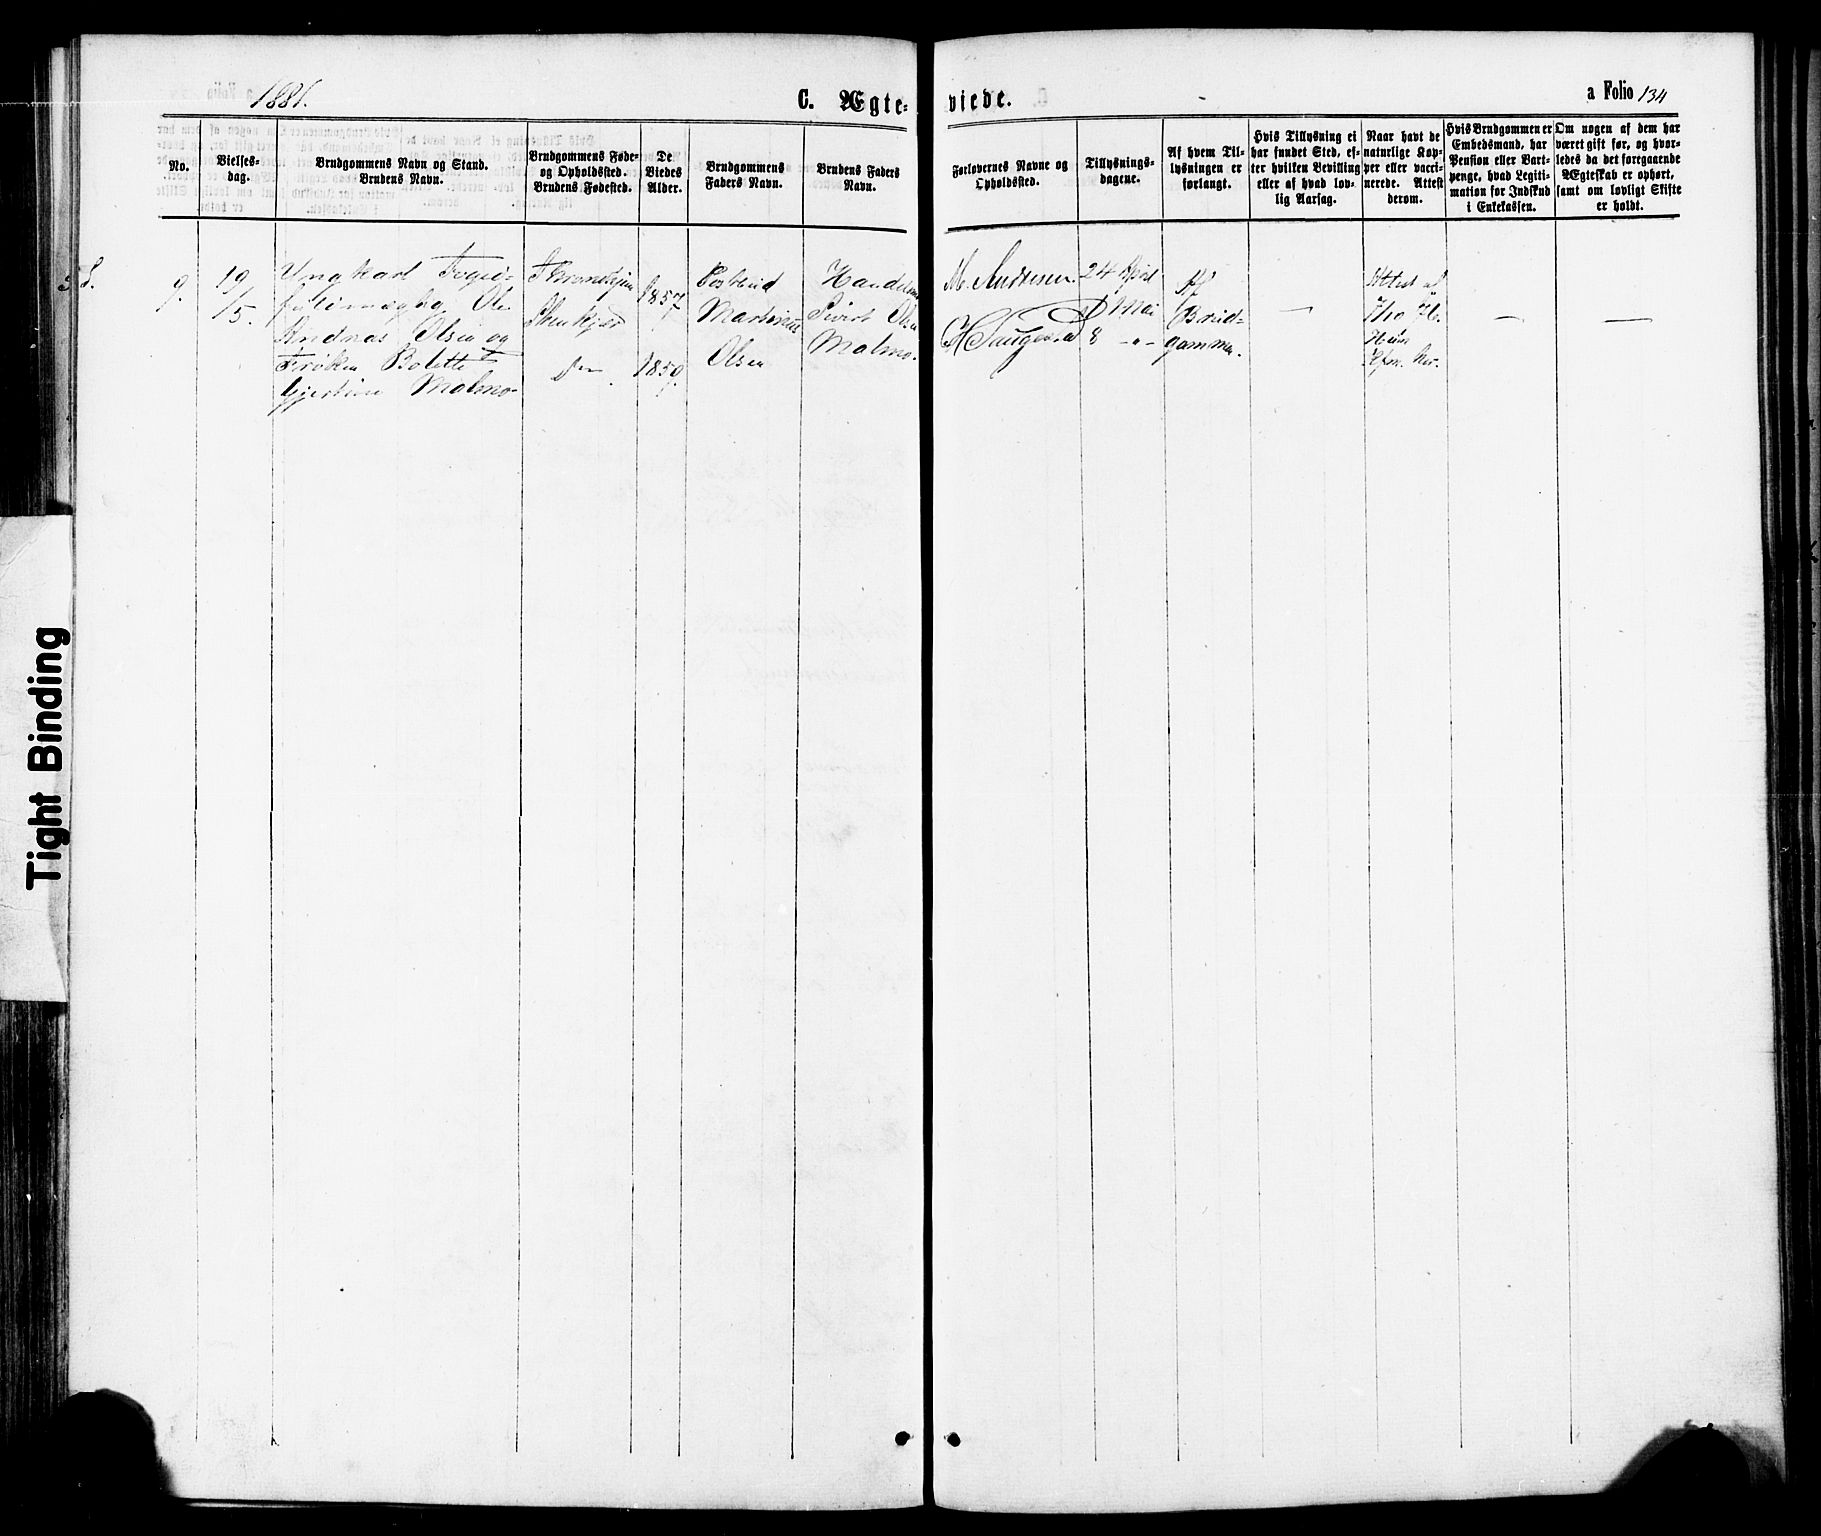 1881.
C. Ægte-
viede.
a Folio 134
No.
Vielses-
dag.
Brudgommens Navn og Stand.
Brudens Navn.
Brudgommens Føde-
og Opholdssted.
Brudens Fødested.
De
Viedes
Alder.
Brudgommens
Faders Navn.
Brudens Faders
Navn.
Forlovernes Navne og
Opholdssted.
Tillysnings-
dagene.
Af hvem Til-
lysningen er
forlangt.
Hvis Tillysning ei
har fundet Sted, ef-
ter hvilken Bevilling
eller af hvad lov-
lig Aarsag.
Naar havt de
naturlige Kop-
per eller vacci-
nerede. Attest
derom.
Hvis Brudgommen er
Embedsmand, har
Pension eller Vart-
penge, hvad Legiti-
mation for Indskud
i Enkekassen.
Om nogen af dem har
været gift før, og hvor-
ledes da det foregaaende
Ægteskab er ophørt,
samt om lovligt Skifte
er holdt.
9.
19/5.
Ungkarl Foged-
fuldmægtig Ole
Andreas Olsen og
Frøken Bolette
Gjertine Malmo.
Throndhjem
Stenkjær
Do
1857
1859.
Postbud
Martinus
Olsen
Sivert Olsen
Malmo.
M. Andresen.
H. Saugestad
24 April
1 Mai
8 -"-
Af
Brud-
gommen.
—
Attest af
7/10 76.
—
—
Tight Binding